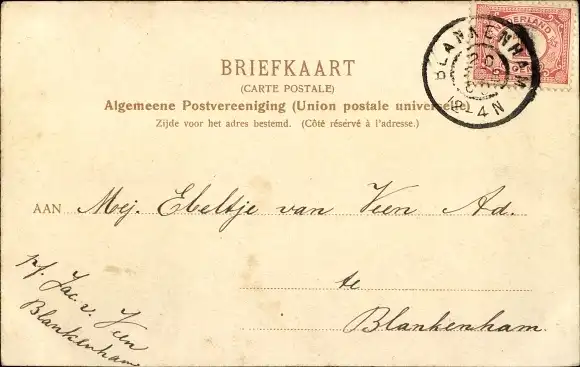 BRIEFKAART
(CARTE POSTALE)
Algemeene Postvereeniging (Union postale universelle)
Zijde voor het adres bestemd. (Côté réservé à l'adresse.)
NEDERLAND
BLANKENHAM
12-4N
AAN Mej. Ebeltje van Veen Ad.
te
Blankenham.
pf. Jac. v. Veen
Blankenham